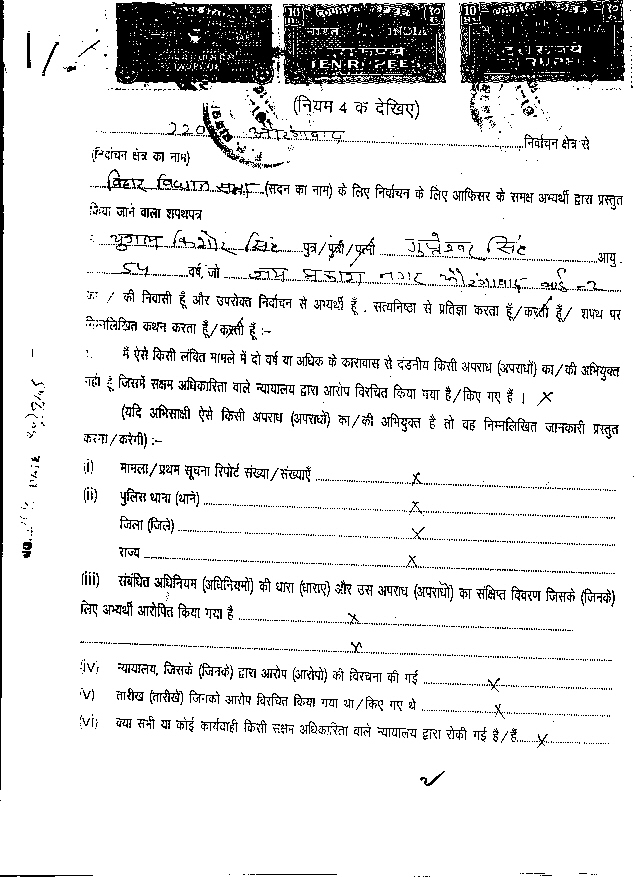 भारत INDIA
TEN RUPEES
(नियम 4 क देखिए)
220 औरंगाबाद निर्वाचन क्षेत्र से
(निर्वाचन क्षेत्र का नाम)
बिहार विधान सभा (सदन का नाम) के लिए निर्वाचन के लिए आफिसर के समक्ष अभ्यर्थी द्वारा प्रस्तुत
किया जाने वाला शपथपत्र
किशोर सिंह पुत्र/पुत्री/पत्नी सिंह आयु
54 वर्ष, जो नगर औरंगाबाद वार्ड -2
का / की निवासी हूँ और उपरोक्त निर्वाचन से अभ्यर्थी हूँ , सत्यनिष्ठा से प्रतिज्ञा करता हूँ/करती हूँ/ शपथ पर
निम्नलिखित कथन करता हूँ/करती हूँ :-
मैं ऐसे किसी लंबित मामले में दो वर्ष या अधिक के कारावास से दंडनीय किसी अपराध (अपराधों) का/की अभियुक्त
नहीं हूँ जिसमें सक्षम अधिकारिता वाले न्यायालय द्वारा आरोप विरचित किया गया है/किए गए हैं । X
(यदि अभिसाक्षी ऐसे किसी अपराध (अपराधों) का/की अभियुक्त है तो वह निम्नलिखित जानकारी प्रस्तुत
करेगा/करेगी) :-
(i) मामला/प्रथम सूचना रिपोर्ट संख्या/संख्याएँ X
(ii) पुलिस थाना (थाने) X
जिला (जिले) X
राज्य X
(iii) संबंधित अधिनियम (अधिनियमों) की धारा (धाराएं) और उस अपराध (अपराधों) का संक्षिप्त विवरण जिसके (जिनके)
लिए अभ्यर्थी आरोपित किया गया है X
X
(iv) न्यायालय, जिसके (जिनके) द्वारा आरोप (आरोपों) की विरचना की गई X
(v) तारीख (तारीखें) जिनको आरोप विरचित किया गया था/किए गए थे X
(vi) क्या सभी या कोई कार्यवाही किसी सक्षम अधिकारिता वाले न्यायालय द्वारा रोकी गई है/हैं X